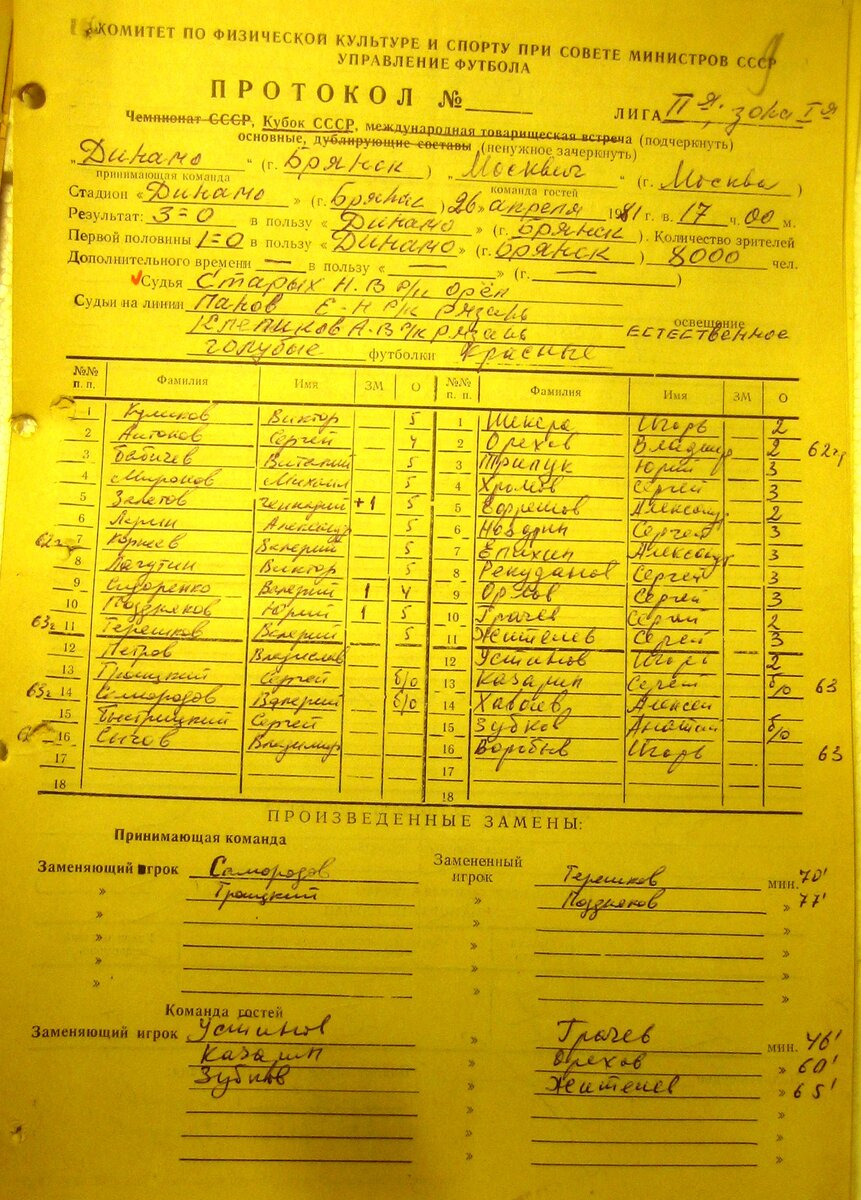 КОМИТЕТ ПО ФИЗИЧЕСКОЙ КУЛЬТУРЕ И СПОРТУ ПРИ СОВЕТЕ МИНИСТРОВ СССР
УПРАВЛЕНИЕ ФУТБОЛА
ПРОТОКОЛ №
ЛИГА П я, зона I я
Чемпионат СССР, Кубок СССР, международная товарищеская встреча (подчеркнуть)
основные, дублирующие составы (ненужное зачеркнуть)
„Динамо“ (г. Брянск) „Москвич“ (г. Москва)
принимающая команда команда гостей
Стадион «Динамо» (г. Брянск) 26» апреля 1981 г. в 17 ч. 00 м.
Результат: 3=0 в пользу «Динамо» (г. Брянск). Количество зрителей
Первой половины 1=0 в пользу «Динамо» (г. Брянск) 8000 чел.
Дополнительного времени — в пользу « — » (г. — )
Судья Старых Н.В р/к Орёл
Судьи на линии Панов Е-Н р/к Рязань
Клепиков А-В р/к Рязань освещение ЕСТЕСТВЕННОЕ
голубые футболки красные
№№ п. п. Фамилия Имя ЗМ О №№ п. п. Фамилия Имя ЗМ О
1 Куликов Виктор 5 1 Шекера Игорь 2
2 Антонов Сергей 4 2 Орехов Владимир 2 62г
3 Бабичев Виталий 5 3 Трипук Юрий 3
4 Миронов Михаил 5 4 Хромов Сергей 3
5 Золотов Геннадий +1 5 5 Ефремов Александр 2
6 Ларин Александр 5 6 Сергей 3
62г 7 Корнеев Валерий 5 7 Епихин Александр 3
8 Лагутин Виктор 5 8 Сергей 3
9 Сидоренко Валерий 1 4 9 Орлов Сергей 3
10 Поздняков Юрий 1 5 10 Грачев Сергей 2
63г 11 Терешков Валерий 5 11 Жителев Сергей 3
12 Петров Владислав 12 Устинов Игорь 2
13 Троицкий Сергей б/о 13 Казарин Сергей б/о 63
63г 14 Самородов Валерий б/о 14 Алексей
15 Быстрицкий Сергей 15 Зубков Анатолий б/о
16 Сычов Владимир 16 Воробьв Игорь 63
17 17
18 18
ПРОИЗВЕДЕННЫЕ ЗАМЕНЫ:
Принимающая команда
Заменяющий игрок Самородов Замененный игрок Терешков мин. 70'
» Троицкий » Поздняков » 77'
» » »
» » »
» » »
» » »
Команда гостей
Заменяющий игрок Устинов » Грачев мин. 46'
Казарин » Орехов » 60'
Зубков » Жителев » 65'
» »
» »
» »